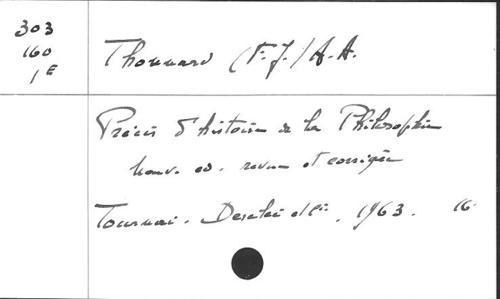 303
160
1E
Thonnard (F.J.) A.A.
Précis d'histoire de la Philosophie
Nouv. éd. revue et corrigée
Tournai. Desclée et Cie. 1963. 16